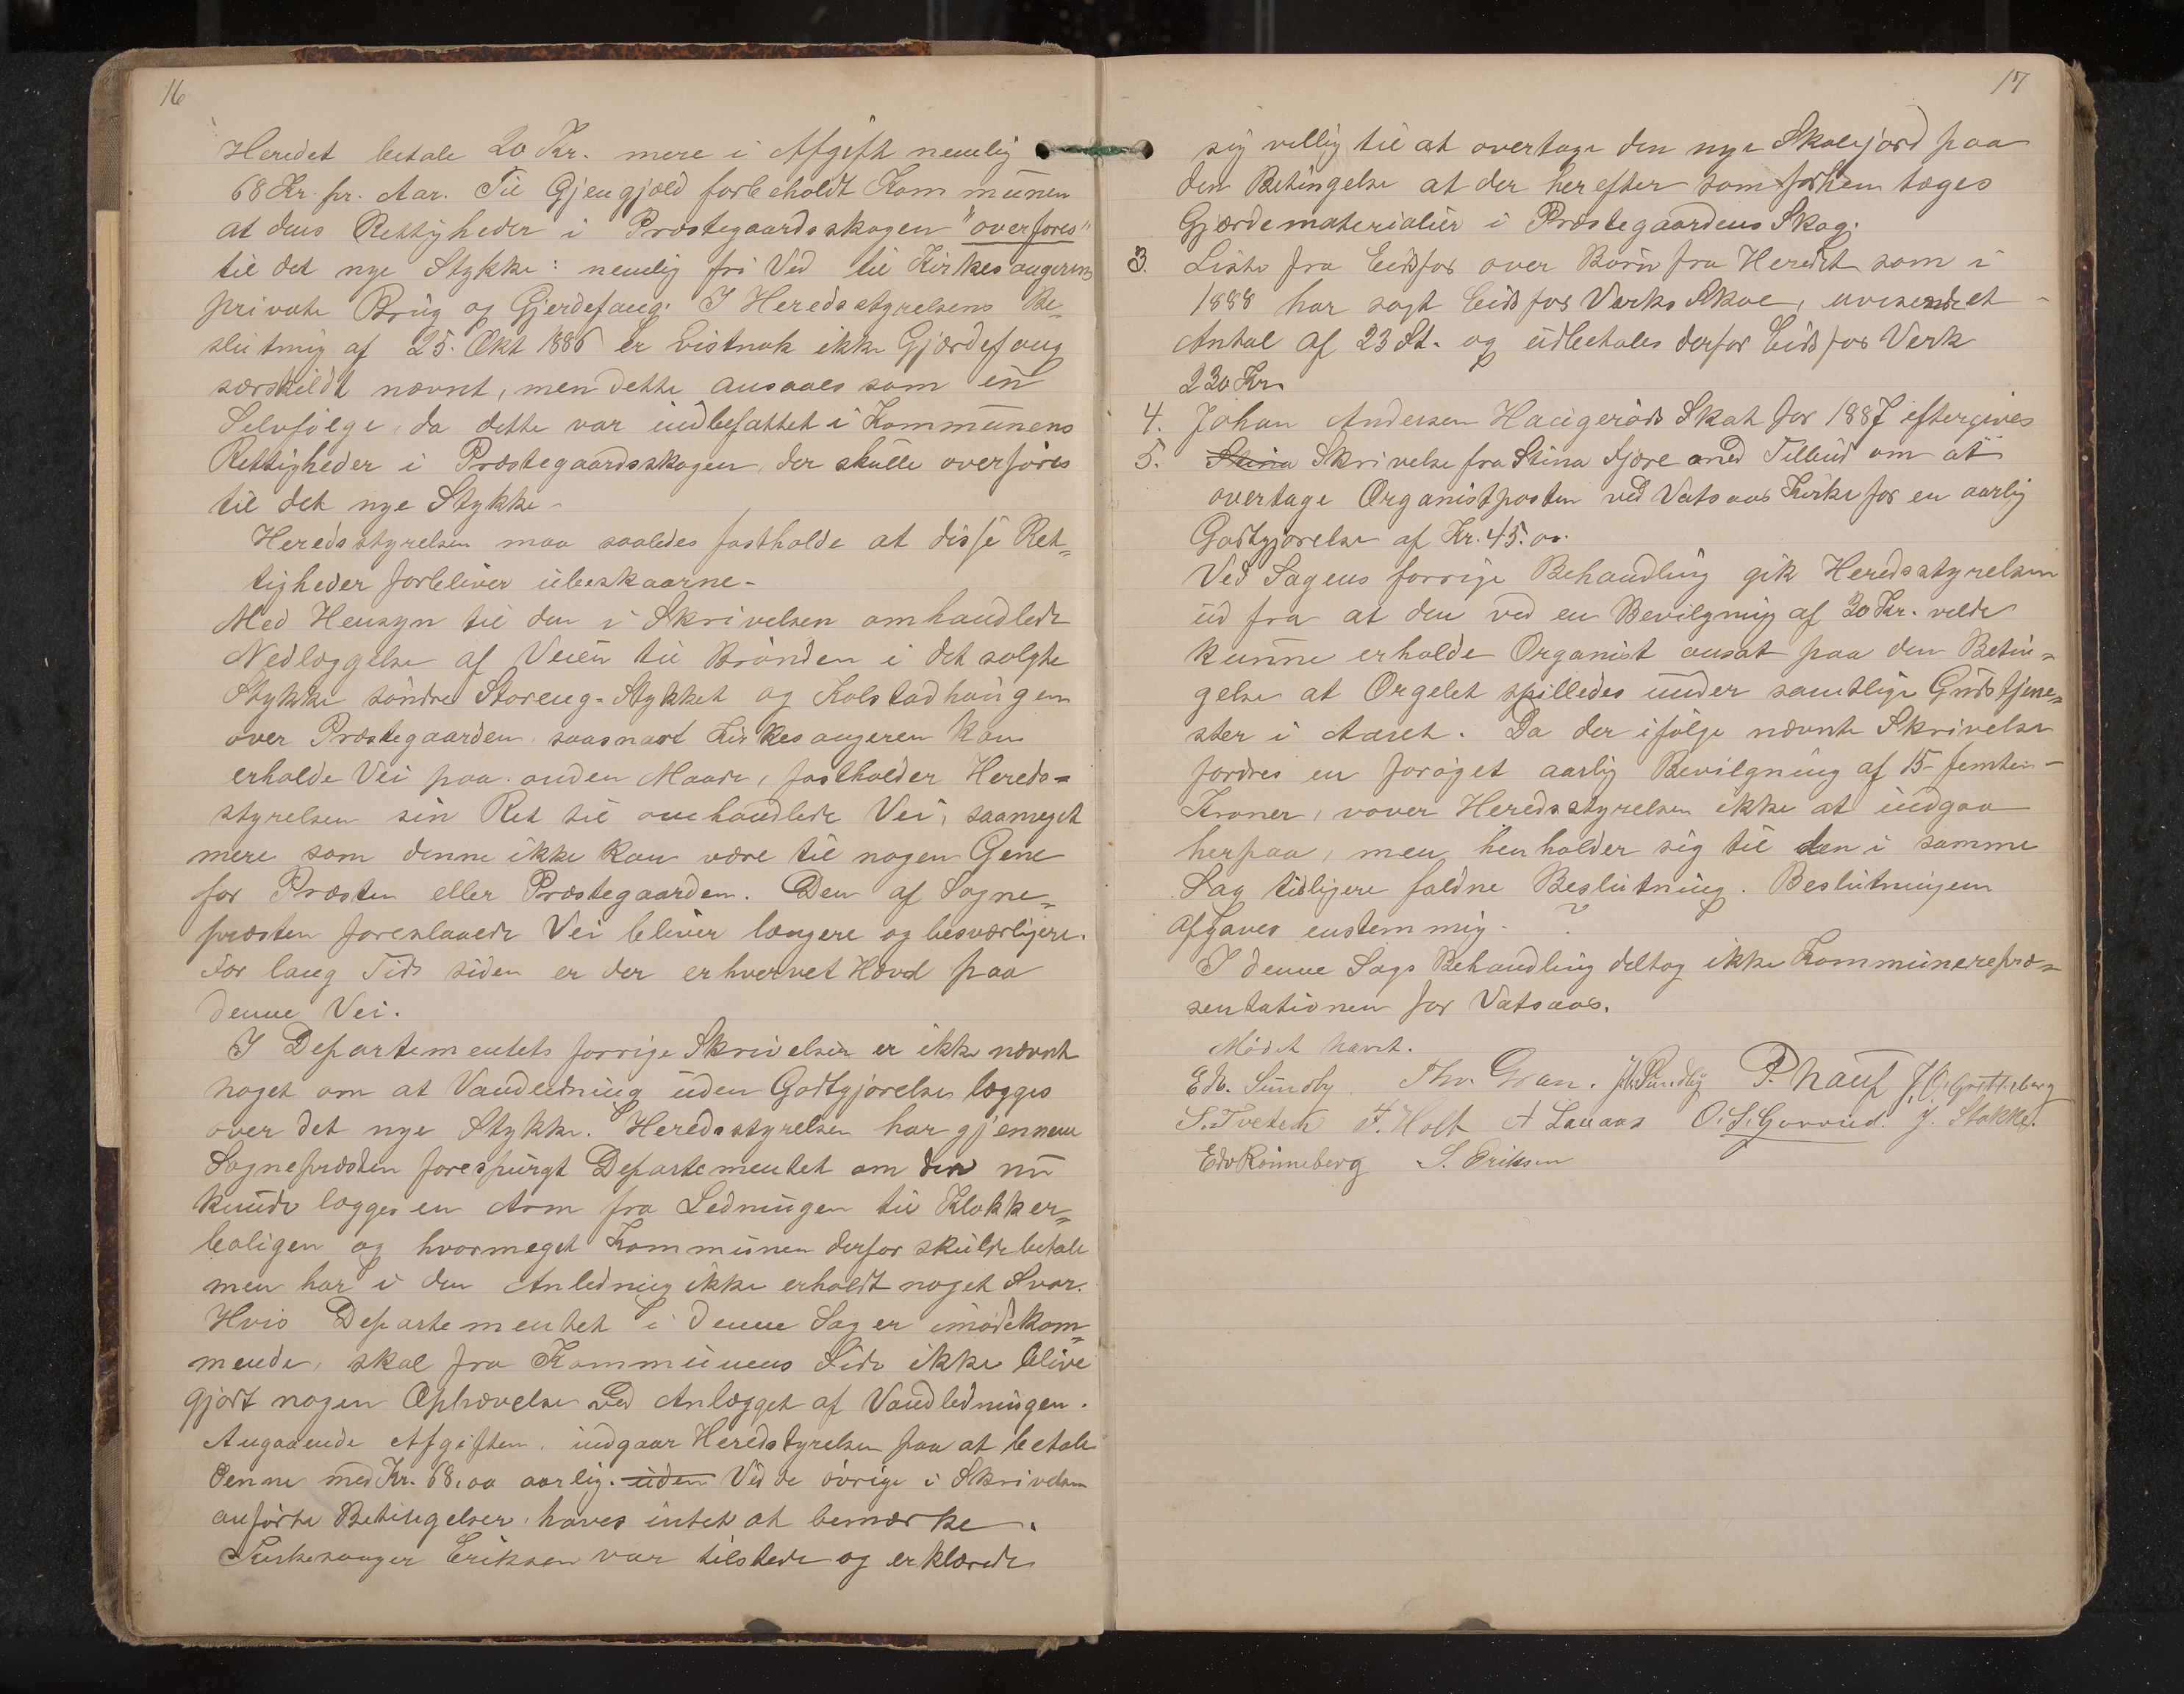 16
Heredet betale 20 Kr. mere i Afgift nemlig
68 Kr. pr. Aar. Til Gjengjæld forbeholdt Kommunen
at dens Rettigheder i Præstegaardsskogen "overføres"
til det nye Stykke: nemlig fri Ved til Kirkesangerens
private Brug og Gjerdefang. I Heredsstyrelsens Be=
slutning af 25. Okt 1886 er Vistnok ikke Gjærdefang
særskildt nævnt, men dette ansaaes som en
Selvfølge, da dette var indbefattet i Kommunens
Rettigheder i Præstegaardsskogen, der skulle overføres
til det nye Stykke -
Heredsstyrelsen maa saaledes fastholde at disse Ret=
tigheder forbliver ubeskaarne -
Med Hensyn til den i Skrivelsen omhandlede
Nedlæggelse af Veien til Brønden i det solgte
Stykke søndre Storeng-Stykket og Kolstadhaugen
over Præstegaarden, saasnart Kirkesangeren kan
erholde Vei paa anden Maade, fastholder Hereds=
styrelsen sin Ret til omhandlede Vei, saameget
mere som denne ikke kan være til nogen Gene
for Præsten eller Præstegaarden. Den af Sogne=
præsten foreslaaede Vei bliver længere og besværligere.
For lang Tid siden er der erhvervet Hævd paa
denne Vei.
I Departementets forrige Skrivelser er ikke nævnt
noget om at Vandledning uden Godtgjørelse lægges
over det nye Stykke. Heredsstyrelsen har gjennem
Sognepræsten forespurgt Departementet om der nu
kunde lægges en Arm fra Ledningen til Klokker=
boligen og hvormeget Kommunen derfor skulde betale
men har i den Anledning ikke erholdt noget Svar.
Hvis Departementet i denne Sag er imødekom=
mende, skal fra Kommunens Side ikke blive
gjort nogen Ophævelse ved Anlægget af Vandledningen.
Angaaende Afgiften, indgaar Heredstyrelsen paa at betale
denne med Kr. 68,00 aarlig. uden Ved de øvrige i Skrivelsen
anførte Betingelser, haves intet at bemærke.
Kirkesanger Eriksen var tilstede og erklærede
17
sig villig til at overtage den nye Skolejord paa
den Betingelse at der herefter som forhen tages
Gjærdematerialier i Præstegaardens Skog.
3. Liste fra Eidsfos over Børn fra Heredet som i
1888 har søgt Eidsfos Værks Skole, udviser et
Antal af 23 St. og udbetales derfor Eidsfos Verk
230 Kr.
4. Johan Andersen Haugerøds Skat for 1887 eftergives
5. Stina Skrivelse fra Stina Fjære med Tilbud om at
overtage Organistposten ved Vatsaas Kirke for en aarlig
Godtgjørelse af Kr. 45.00.
Ved Sagens forrige Behandling gik Heredsstyrelsen
ud fra at den ved en Bevilgning af 30 Kr. vilde
kunne erholde Organist ansat paa den Betin=
gelse at Orgelet spilledes under samtlige Gudstjene=
ster i Aaret. Da der ifølge nævnte Skrivelse
fordres en forøget aarlig Bevilgning af 15 - femten -
Kroner, vover Heredsstyrelsen ikke at indgaa
herpaa, men henholder sig til den i samme
Sag tidligere faldne Beslutning. Beslutningen
afgaves enstemmig. ?
I denne Sags Behandling deltog ikke Kommunerepræ=
sentationen for Vatsaas.
Mødet hævet.
Edv. Sundby. Thv. Gran. P. Nauf
S. Tveten F. Holt A Lauaas O. S. Gorrud. J. Stokke.
Edv Rønneberg S. Eriksen